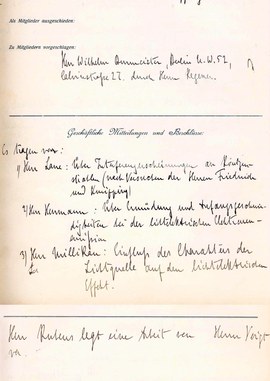 Als Mitglieder ausgeschieden:
Zu Mitgliedern vorgeschlagen:
Herr Wilhelm Burmeister, Berlin N.W. 52,
Calvinstraße 22. durch Herrn Regener.
Geschäftliche Mitteilungen und Beschlüsse:
Es tragen vor:
1) Herr Laue: Über Interferenzerscheinungen an Röntgen-
strahlen (nach Versuchen der Herren Friedrich
und Knipping)
2) Herr Herrmann: Über Zündung und Anfangsgeschwin-
digkeiten bei der lichtelektrischen Elektronen-
emission
3) Herr Millikan: Einfluss des Charakters der
Lichtquelle auf den lichtelektrischen
Effekt.
Herr Rubens legt eine Arbeit von Herrn Voigt
vor.